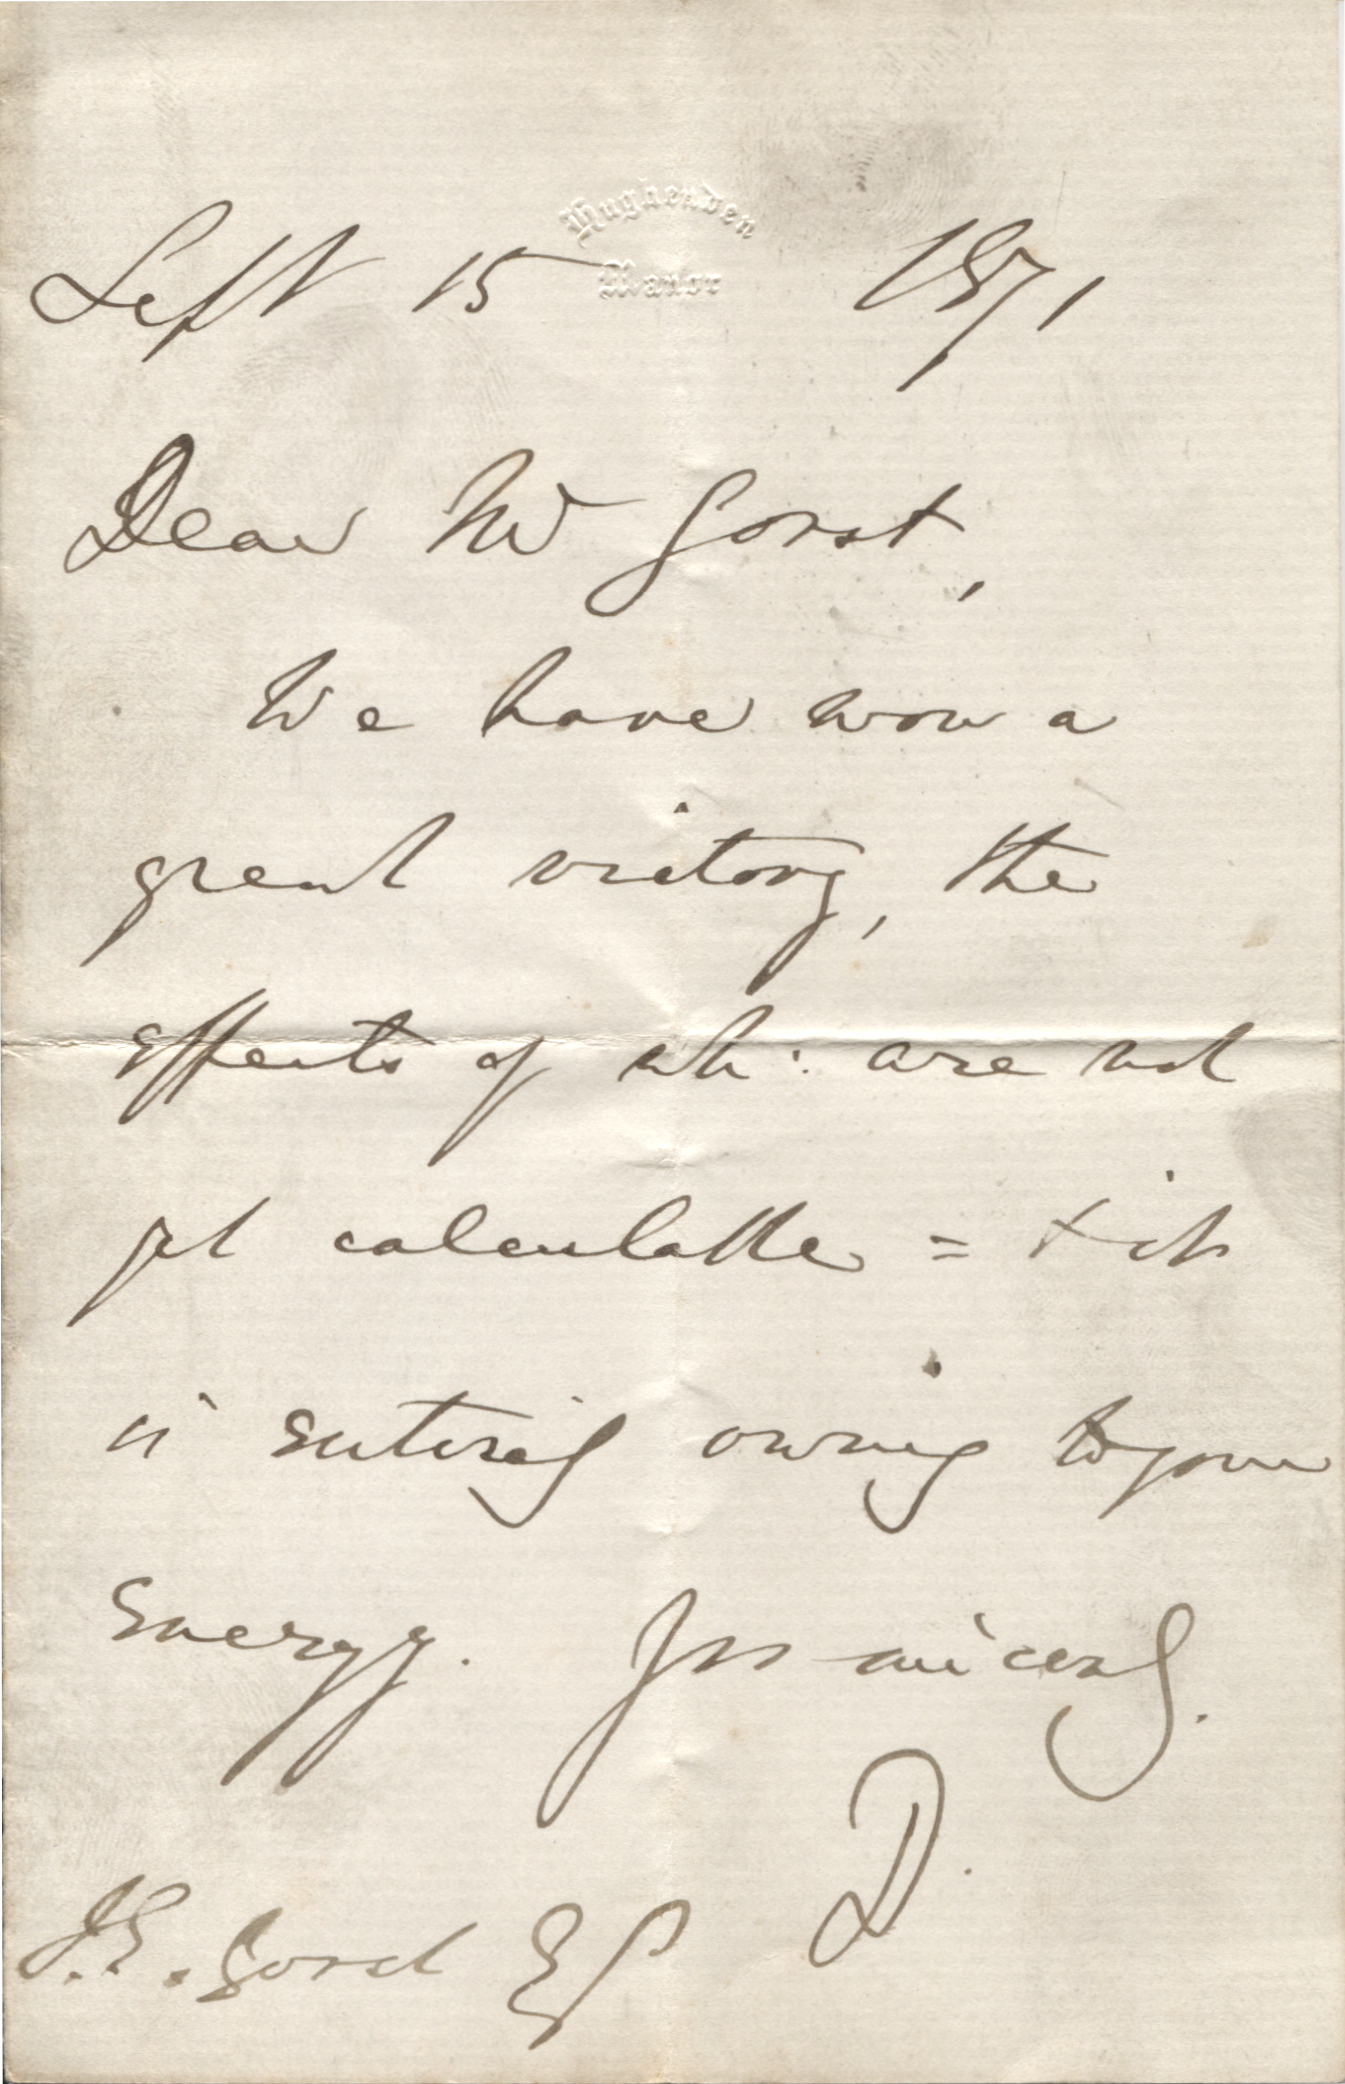 Hughenden
Manor
Sept 15 1871
Dear Mr Gorst,
We have won a
great victory, the
effects of wh: are not
yet calculable = & it
is entirely owing to your
energy. Yrs sincerely.
D.
J.E. Gorst Esq